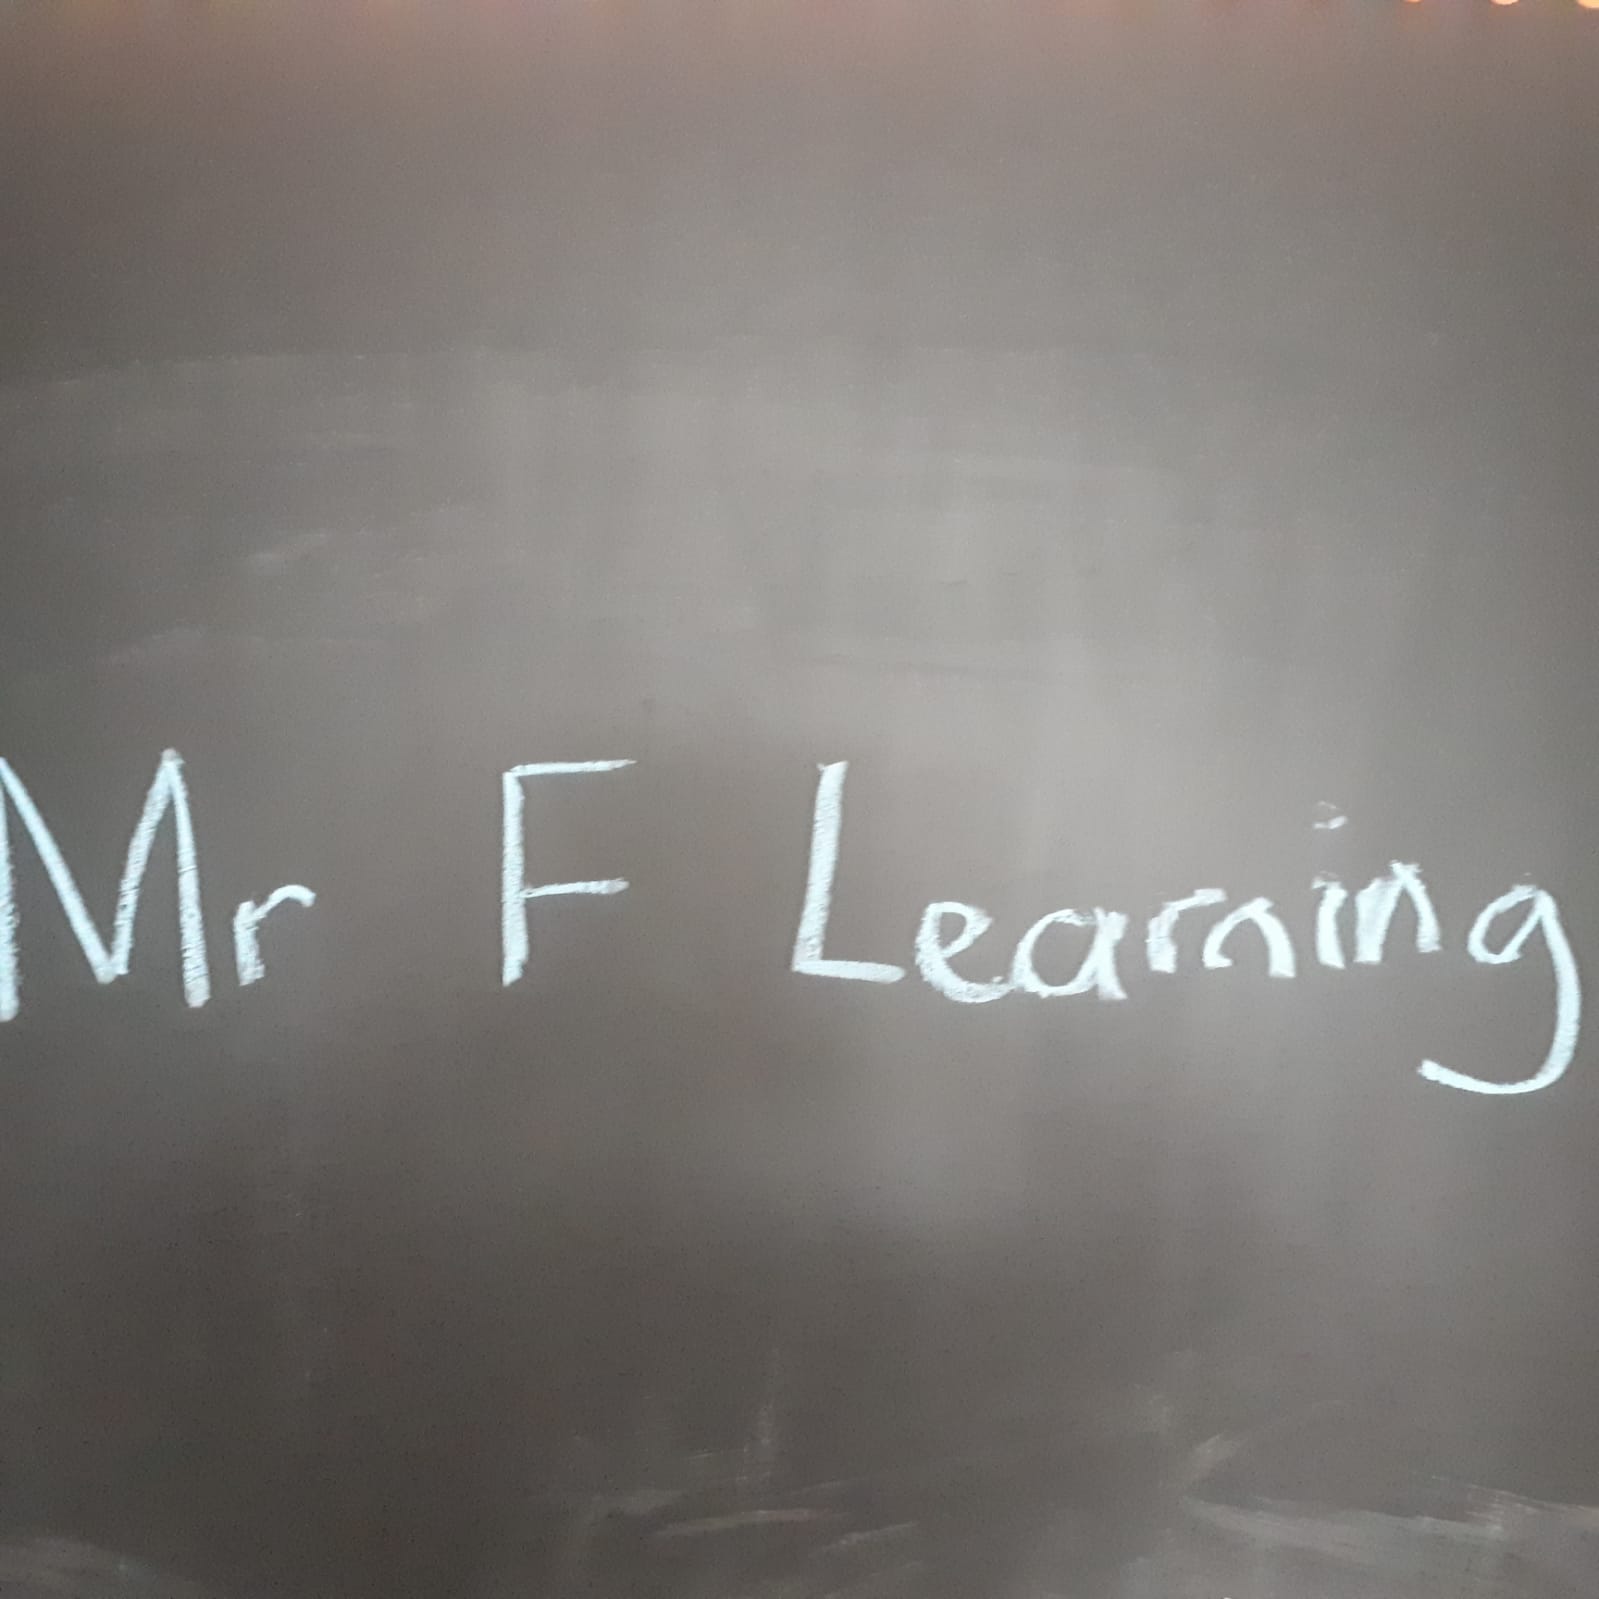 Mr F Learning